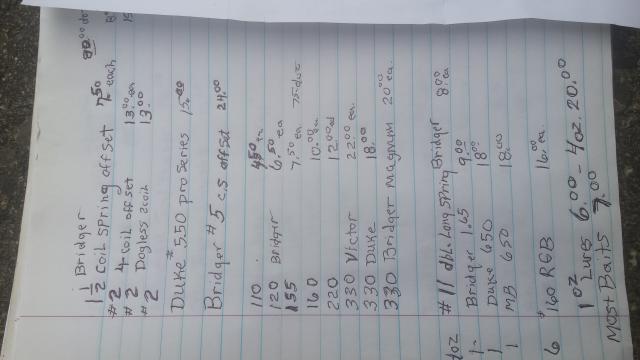 1 1/2 Bridger
#2 coil spring off set 7.50 each
#2 4 coil off set 13.00 ea
#2 Dogless 2 coil 13.00
Duke #550 pro series
Bridger #5 c.s offset 24.00
110
120 Bridger 6.50 ea
155 7.50 ea
160 10.00
220 12.00
330 Victor 22.00 ea
330 Duke 18.00
330 Bridger magnum 20.00 ea.
#11 dbl. Long Spring Bridger 8.00 ea
Bridger 1.65 9.00
1 Duke 650 18.00
1 MB 650 18.00
6 #160 RGB 16.00 ea.
1 oz Lures 6.00 - 4 oz. 20.00
Most Baits 7.00